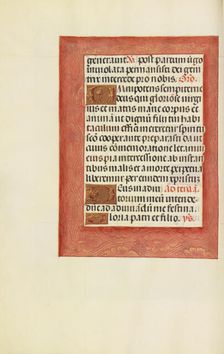 generaut. V. post partum virgo
inviolata permansisti. dei geni
trix intercede pro nobis. Oro.
Omnipotens sempiterne
deus qui gloriose virgi
nis et matris marie corpus et
animam ut dignum filii tui habi
taculum effici mereretur spiritu
sancto cooperante preparasti da ut
cuius comemoratione letamur
eius pia intercessione ab instan
tibus malis et a morte perpetua
liberemur per eundem xpristum
Deus in adiu Ad tertiam
torium meum intende
Domine ad adiuvandum me festina
Gloria patri et filio. ys.